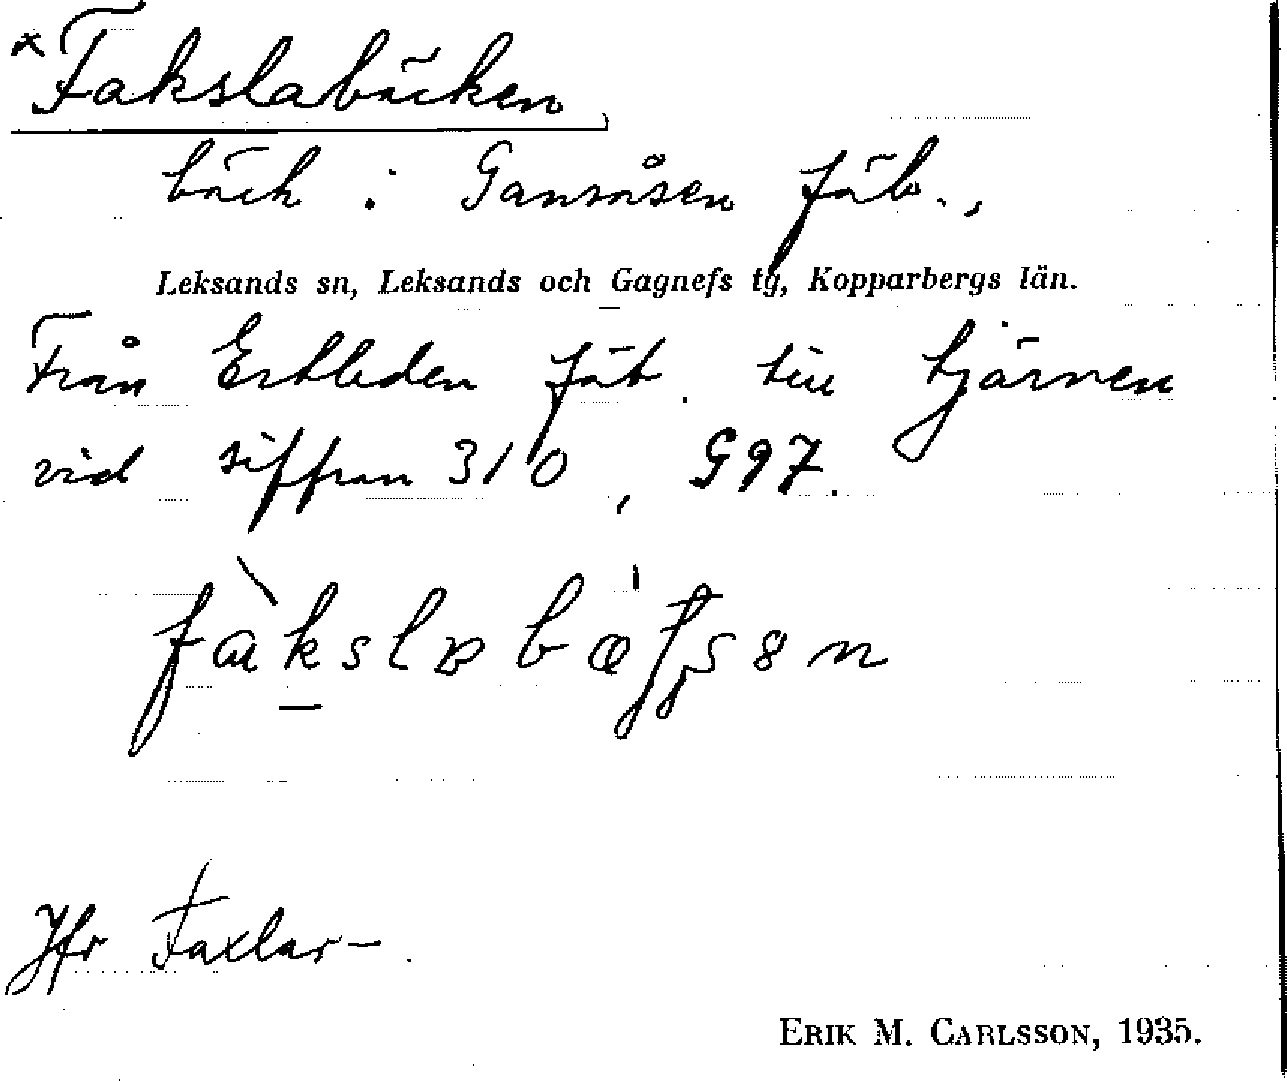 *Fakslabäcken,
bäck i Gansåsen fäb.,
Leksands sn, Leksands och Gagnefs tg, Kopparbergs län.
Från Ertleden fäb. till tjärnen
vid siffran 310, G97.
Jfr Faxlar-.
ERIK M. CARLSSON, 1935.